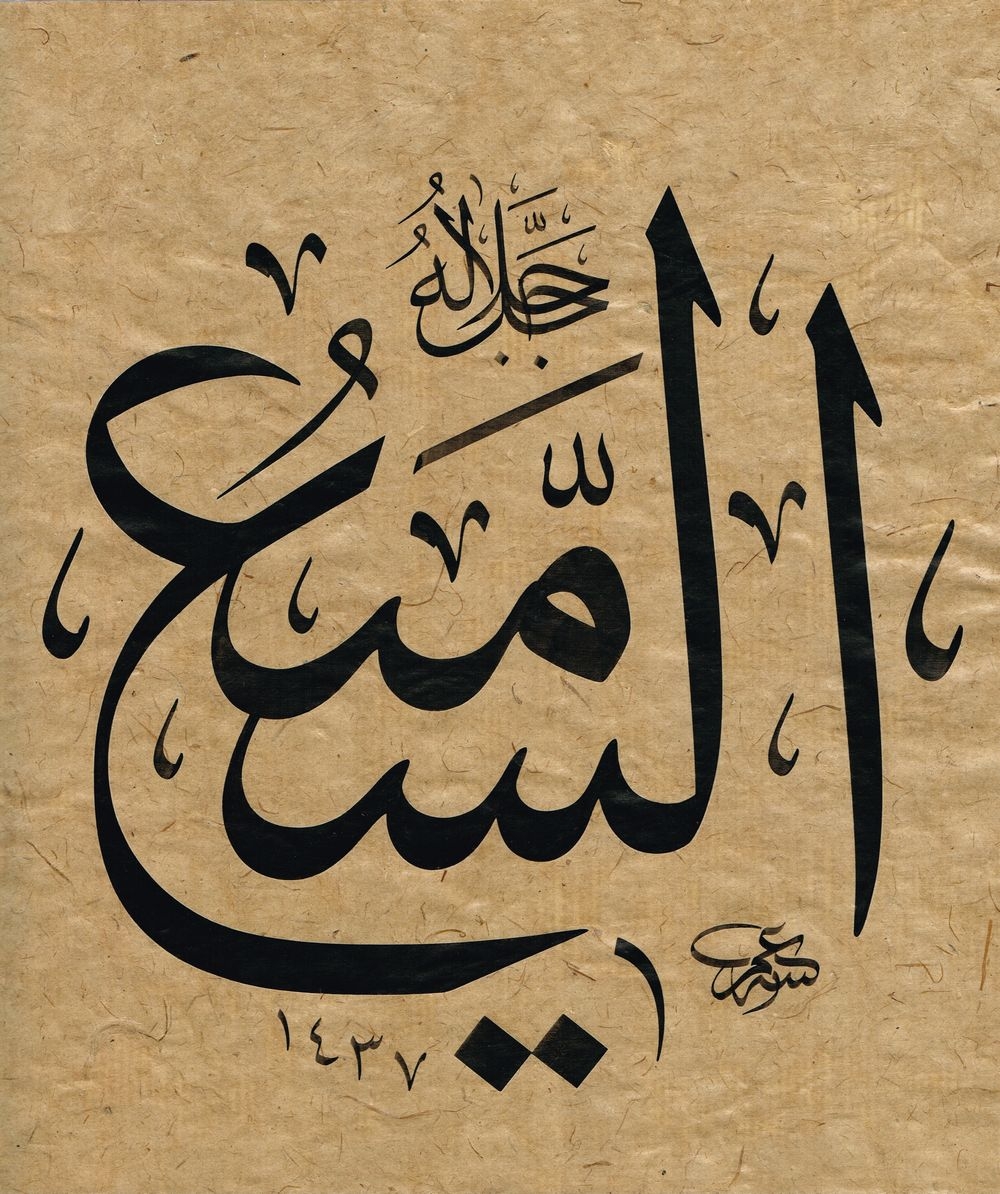 السَّمِيعُ
جَلَّ جَلَالُهُ
١٤٣٧